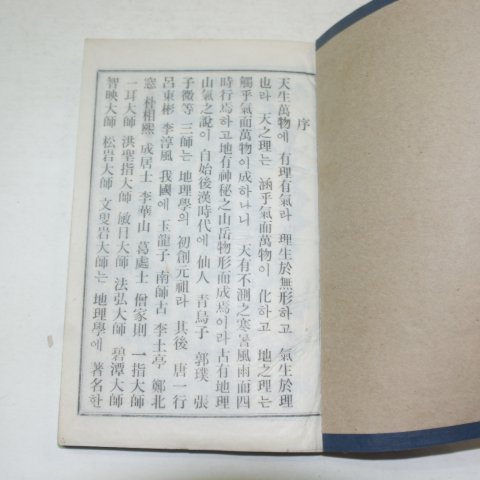 序
天生萬物에 有理有氣라 理生於無形하고 氣生於理
也라 天之理는 涵乎氣而萬物이 化하고 地之理는
觸乎氣而萬物이 成하나니 天有不測之寒暑風雨而四
時行焉하고 地有神秘之山岳物形而成焉이라 古有地理
山氣之說이 自始後漢時代에 仙人 青烏子 郭璞 張
子微等 三師는 地理學의 初創元祖라 其後 唐一行
呂東彬 李淳風 我國에 玉龍子 南師古 李土亭 鄭北
窓 朴相熙 成居士 李華山 葛處士 僧家則 一指大師
一耳大師 洪聖指大師 敏目大師 法弘大師 碧潭大師
智映大師 松岩大師 文曳岩大師는 地理學에 著名한